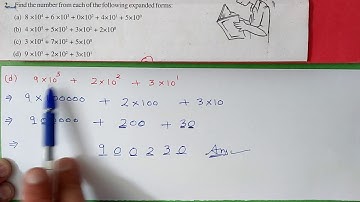 2. Find the number from each of the following expanded forms:
(a) 8×10⁴ + 6×10³ + 0×10² + 4×10¹ + 5×10⁰
(b) 4×10⁵ + 5×10³ + 3×10² + 2×10⁰
(c) 3×10⁴ + 7×10² + 5×10⁰
(d) 9×10⁵ + 2×10² + 3×10¹
(d) 9×10⁵ + 2×10² + 3×10¹
⇒ 9× 00000 + 2×100 + 3×10
⇒ 9 000 + 200 + 30
⇒ 900230 Ans